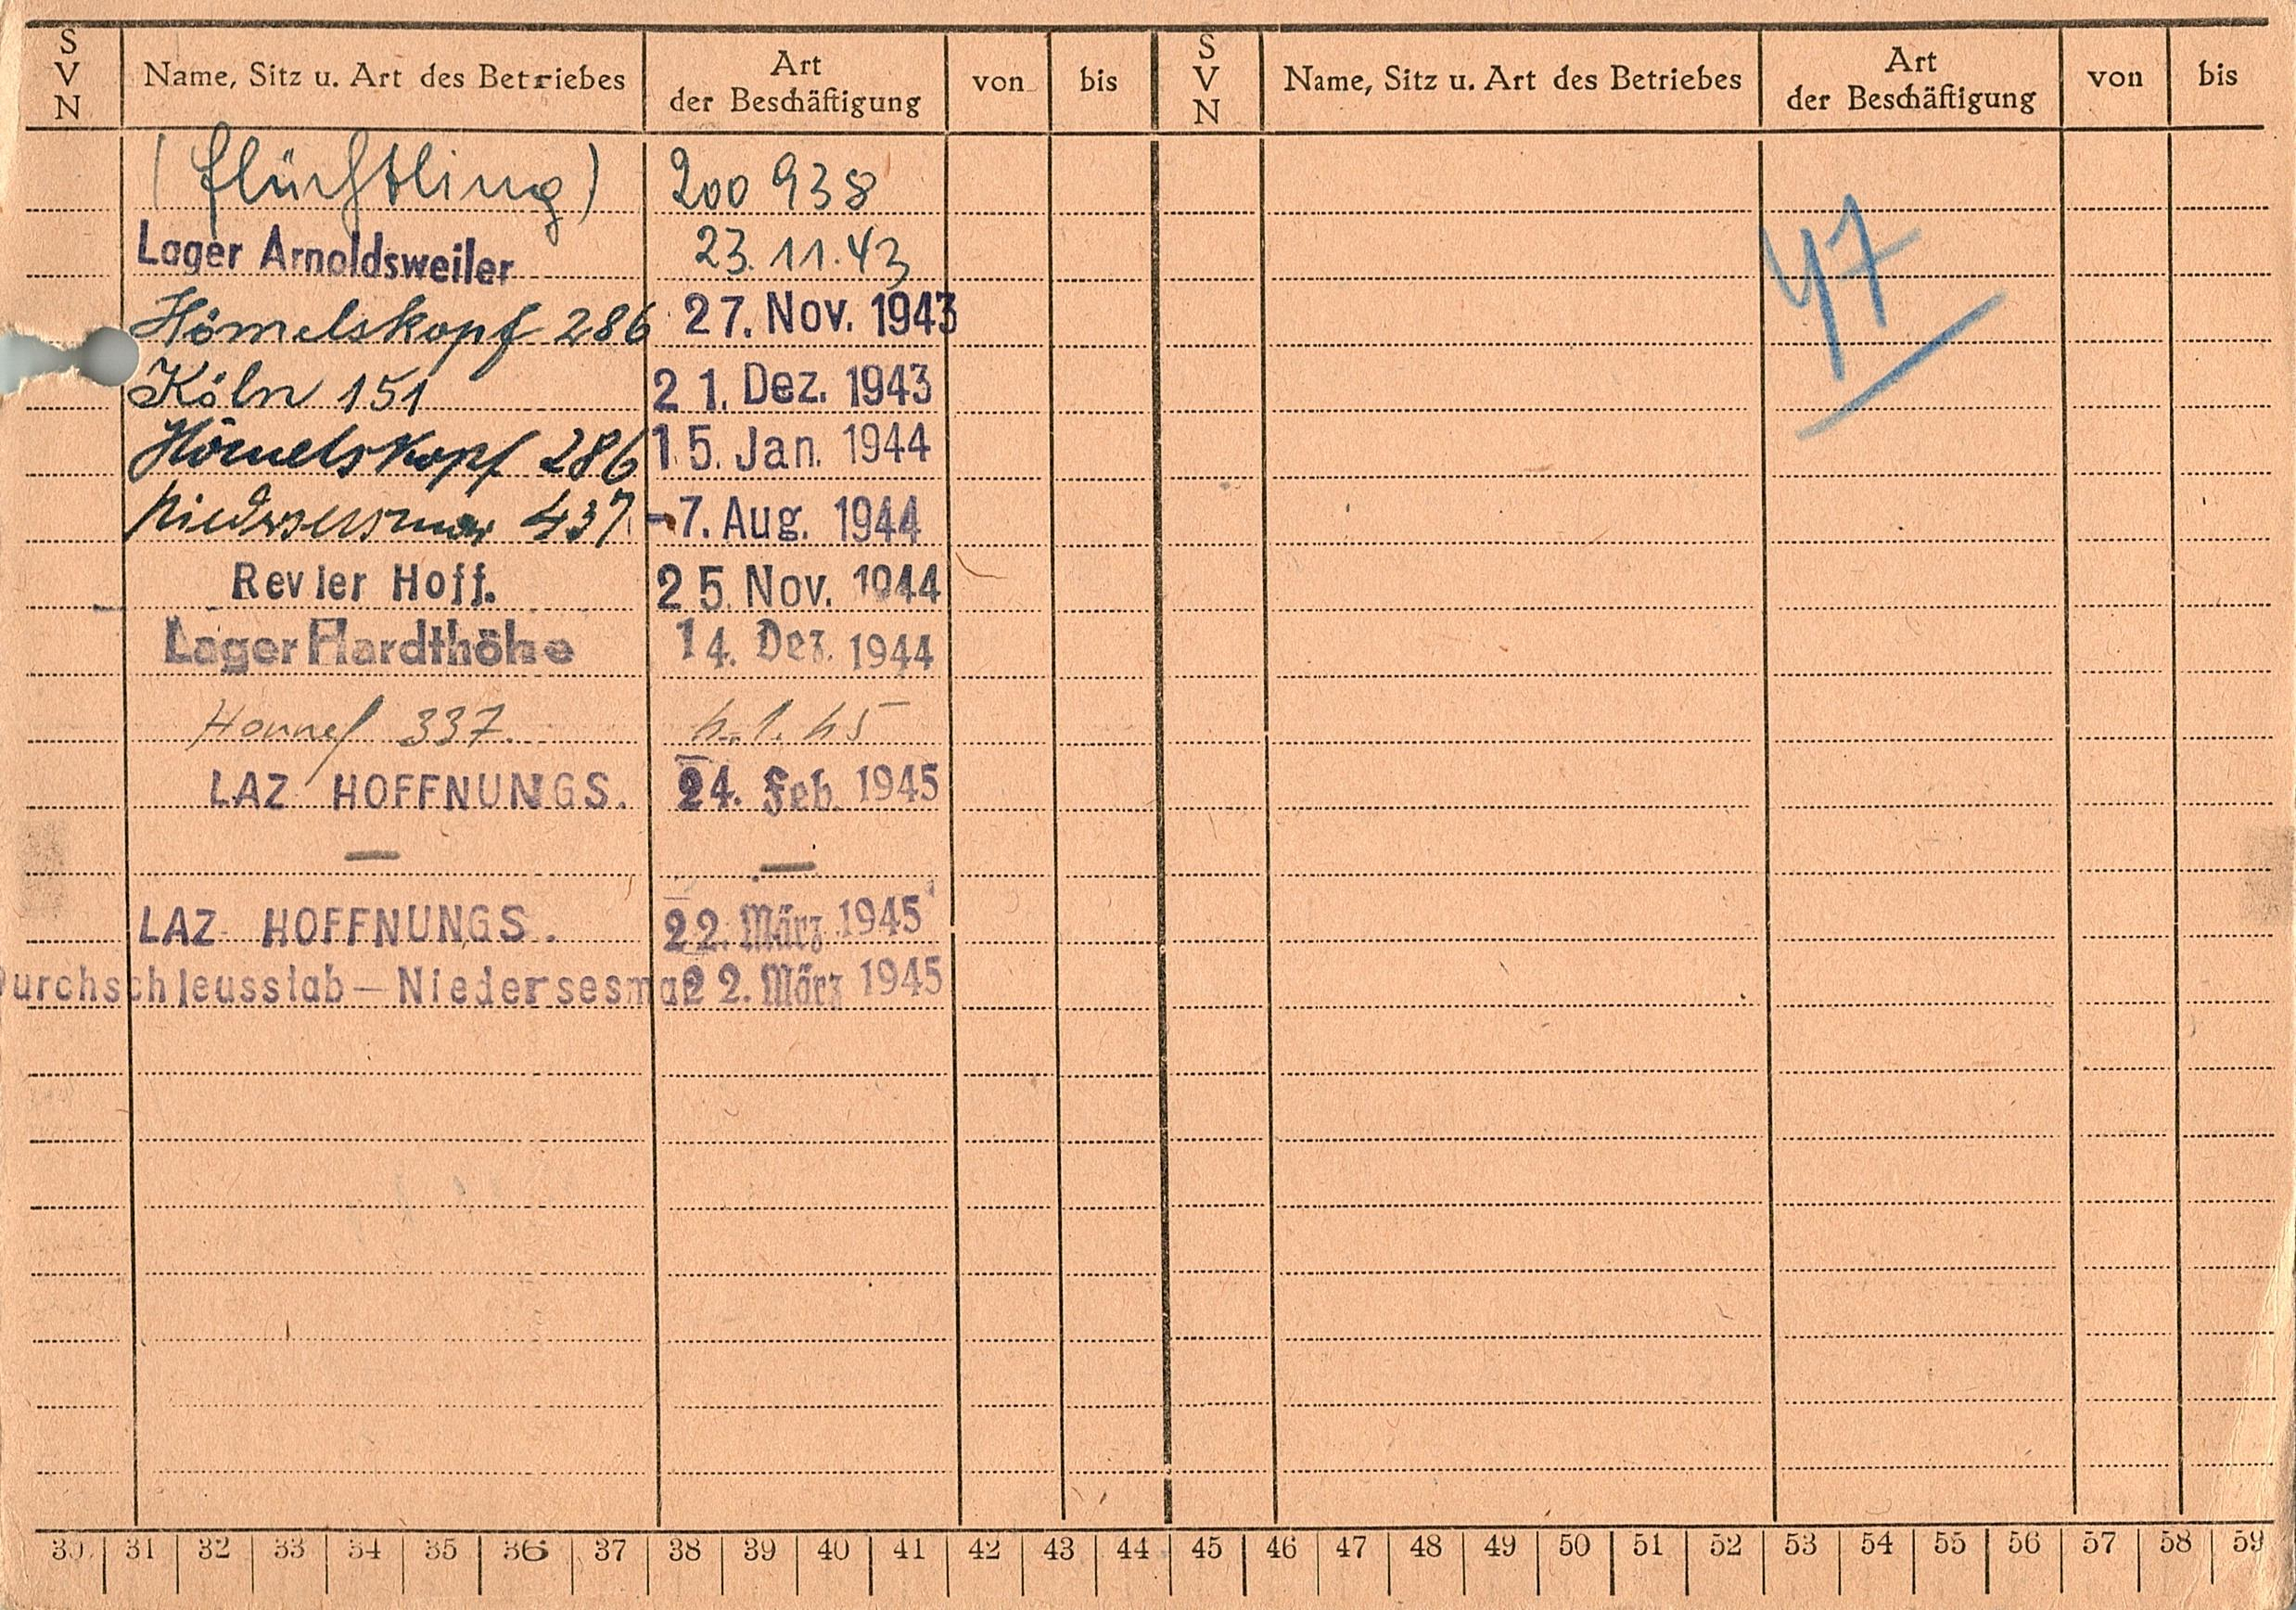 S V N Name, Sitz u. Art des Betriebes Art der Beschäftigung von bis S V N Name, Sitz u. Art des Betriebes Art der Beschäftigung von bis
(Flüchtling) 200 938
Lager Arnoldsweiler 23.11.43
Hömelskopf 286 27. Nov. 1943
47
Köln 151 21. Dez. 1943
Hömelskopf 286 15. Jan. 1944
Niedersessmar 437 -7. Aug. 1944
Revier Hoff. 25. Nov. 1944
Lager Hardthöhe 14. Dez. 1944
Honnef 337. 4.1.45
LAZ HOFFNUNGS. 24. Feb. 1945
— —
LAZ HOFFNUNGS. 22. März 1945
Durchschleusslab — Niedersesmar 22. März 1945
30 31 32 33 34 35 36 37 38 39 40 41 42 43 44 45 46 47 48 49 50 51 52 53 54 55 56 57 58 59